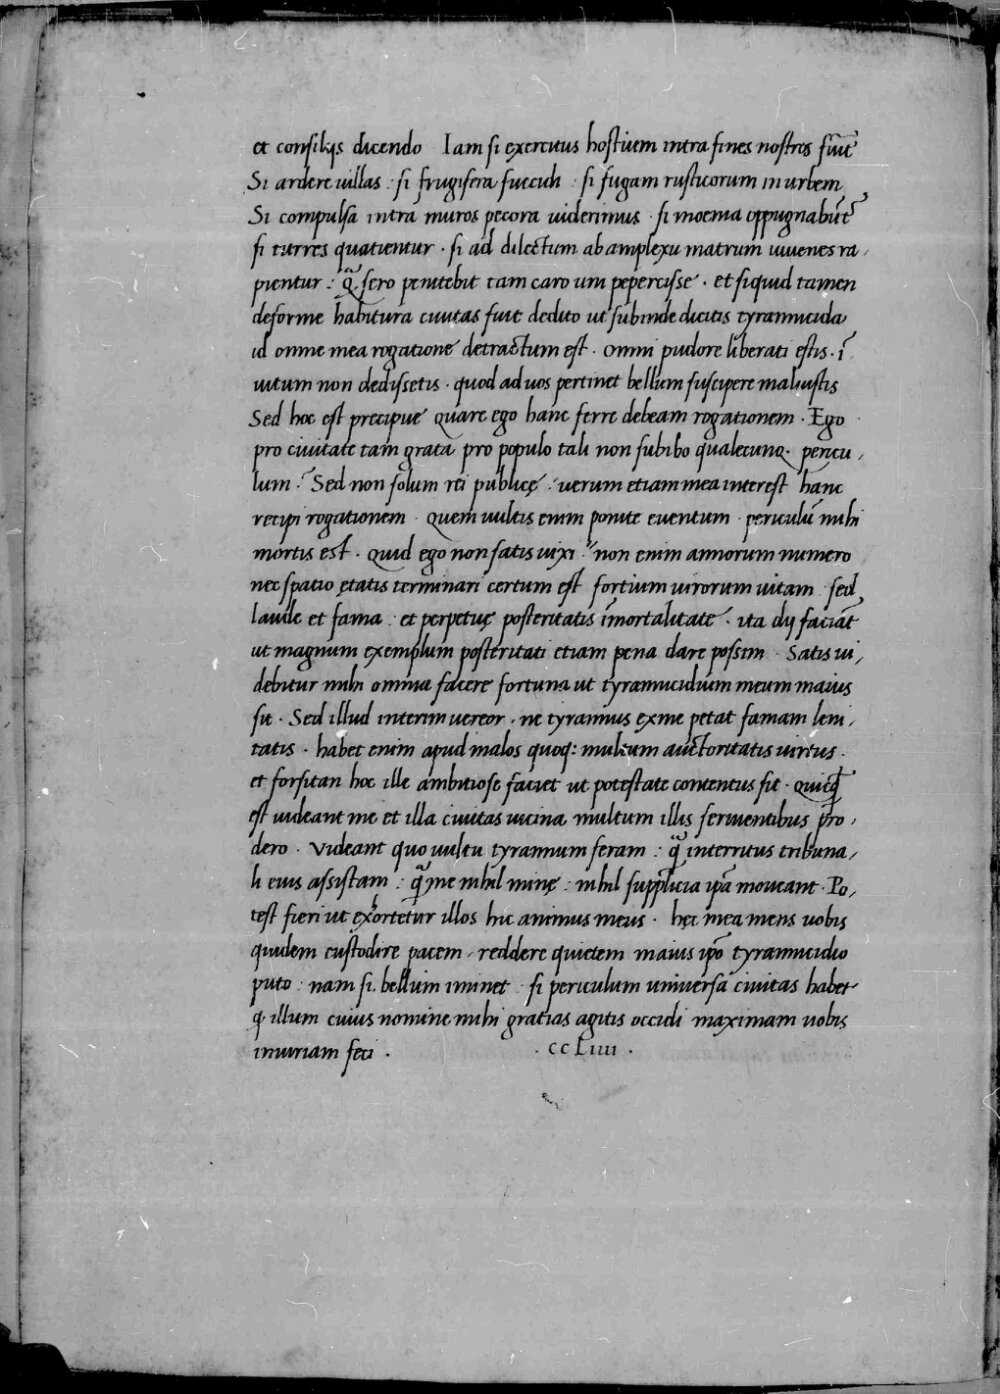 et consilijs dicendo Iam si exercitus hostium intra fines nostros fuīt
Si ardere uillas : si frugifera succidi : si fugam rusticorum in urbem
Si compulsa intra muros pecora uiderimus · si moenia oppugnabūt̄
si turres quatientur · si ad dilectum ab amplexu matrum iuuenes ra,
pientur : q̃ sero penitebit tam caro uni pepercisse · et siquid tamen
deforme habitura ciuitas fuit dedito ut subinde dicitis tyrannicida
id omne mea rogatione detractum est · Omni pudore liberati estis · ī
uitum non dedissetis · quod ad uos pertinet bellum suscipere maluistis
Sed hoc est precipue quare ego hanc ferre debeam rogationem · Ego
pro ciuitate tam grata pro populo tali non subibo qualecunq· pericu,
lum ·̃ Sed non solum rei publicę : uerum etiam mea interest hanc
recipi rogationem · Quem uultis enim ponite euentum · periculū mihi
mortis est · Quid ego non satis uixi ·̃ non enim annorum numero
nec spatio ętatis terminari certum est fortium uirorum uitam · sed
laude et fama : et perpetuę posteritatis īmortalitate · ita dij faciāt
ut magnum exemplum posteritati etiam pena dare possim · Satis ui,
debitur mihi omnia facere fortuna ut tyrannicidium meum maius
sit · Sed illud interim uereor · ne tyrannus ex me petat famam leni,
tatis · habet enim apud malos quoq: multum auctoritatis uirtus ·
et forsitan hoc ille ambitiose faciet ut potestate contentus sit · quicq̄
est uideant me et illa ciuitas uicina multum illis seruientibus pro,
dero · Videant quo uultu tyrannum feram : q̃ interritus tribuna,
li eius assistam : q̃ me nihil minę : nihil supplicia ip̄a moueant · Po,
test fieri ut exhortetur illos hic animus meus · hęc mea mens uobis
quidem custodire pacem, reddere quietem maius ip̄o tyrannicidio
puto : nam si bellum iminet : si periculum uniuersa ciuitas habet
q illum cuius nomine mihi gratias agitis occidi maximam uobis
iniuriam feci · · CCLIIII ·